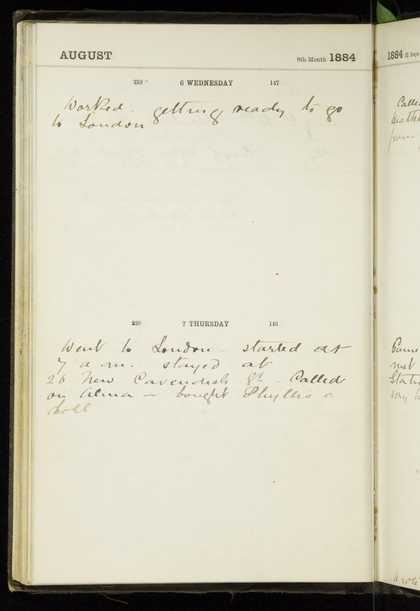 AUGUST 8th Month 1884
219 6 WEDNESDAY 147
Worked. getting ready to go
to London
220 7 THURSDAY 146
Went to London – started at
7 a.m. stayed at
26 New Cavendish St. Called
on Alma – bought Phyllis a
doll
1884
Called
Came
met